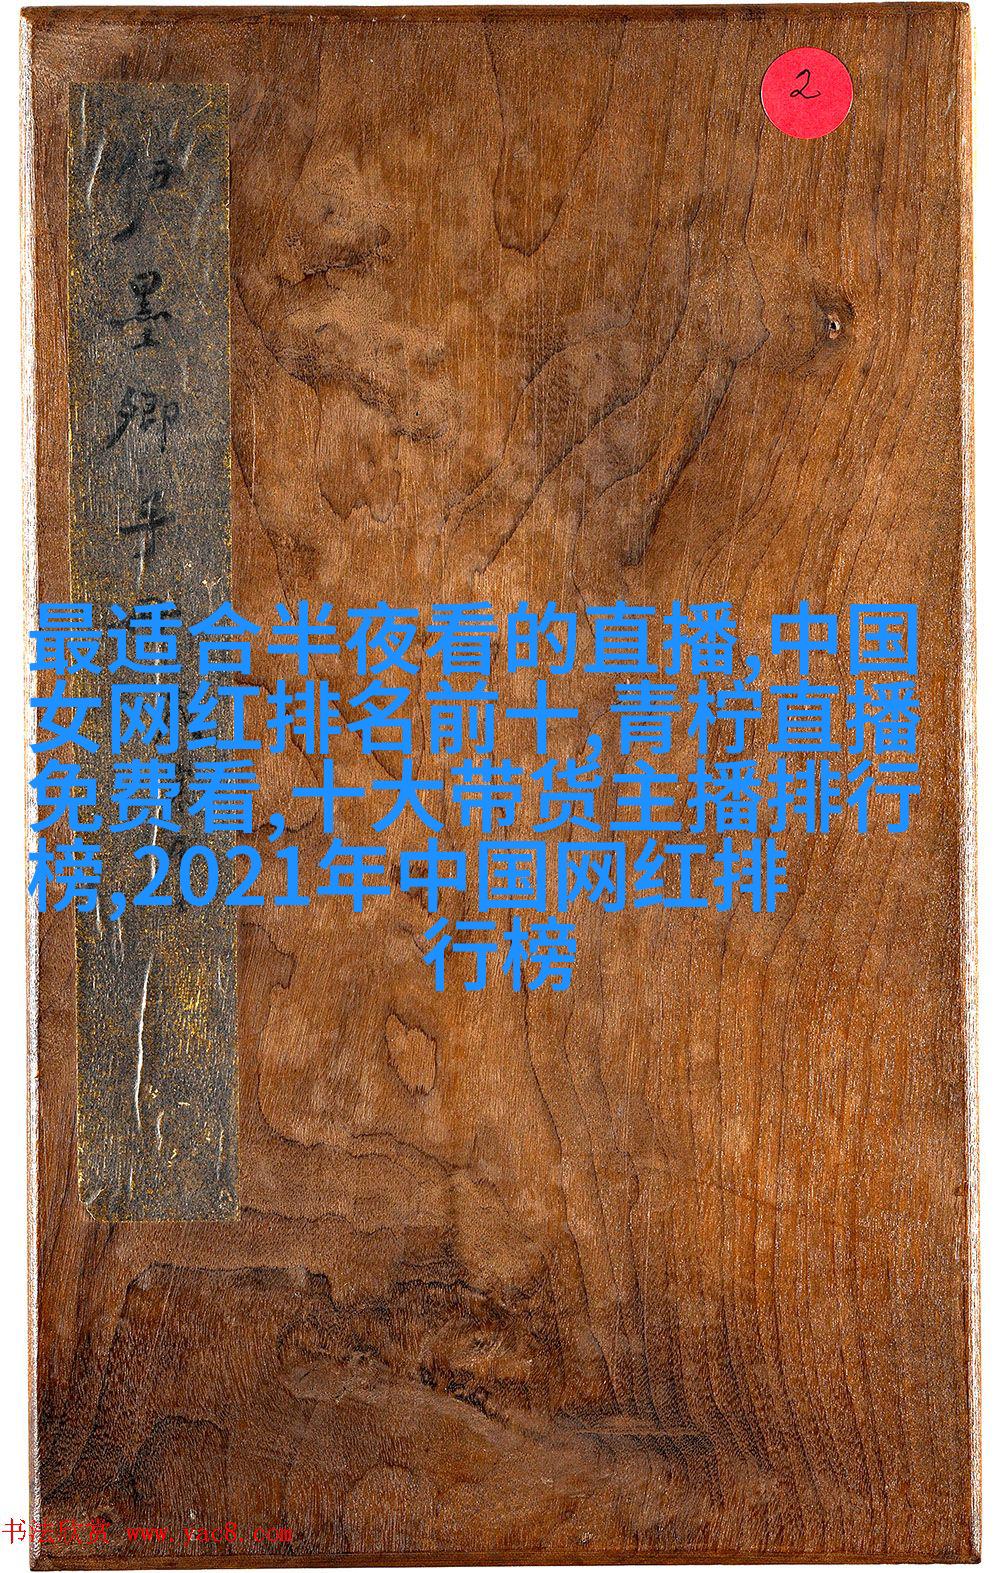 2
墨卿
最适合半夜看的直播,中国
女网红排名前十,青柠直播
免费看,十大带货主播排行
榜,2021年中国网红排
行榜
书法欣赏 www.yac8.com